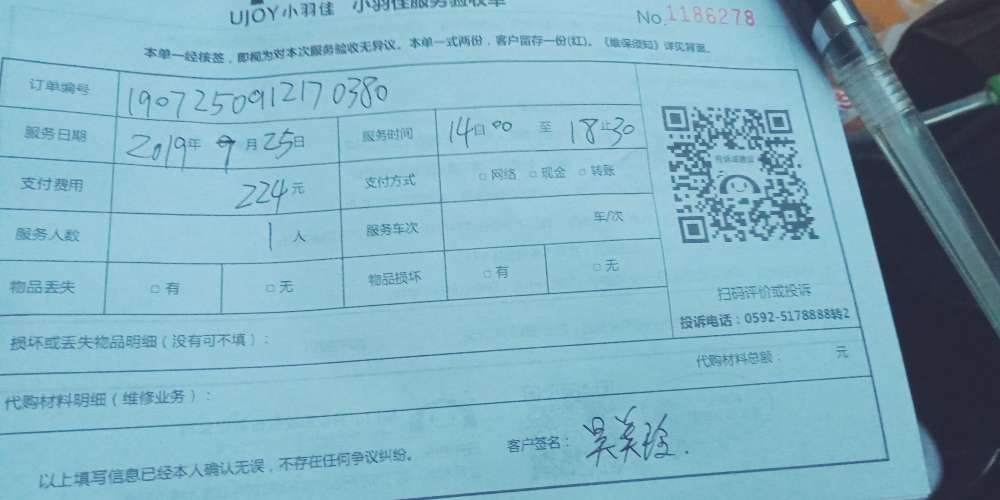 UJOY小羽佳 小羽佳服务验收单
No.1186278
本单一经核签，即视为对本次服务验收无异议。本单一式两份，客户留存一份(红)。《维保须知》详见背面。
订单编号 1907250912170380
服务日期 2019年 9月 25日 服务时间 14日00 至 18止30
支付费用 224元 支付方式 □ 网络 □ 现金 □ 转账
服务人数 1 人 服务车次 车/次
物品丢失 □ 有 □ 无 物品损坏 □ 有 □ 无
投诉或建议
扫码评价或投诉
投诉电话：0592-5178888转2
损坏或丢失物品明细（没有可不填）：
代购材料明细（维修业务）： 代购材料总额： 元
以上填写信息已经本人确认无误，不存在任何争议纠纷。 客户签名：吴美玲.